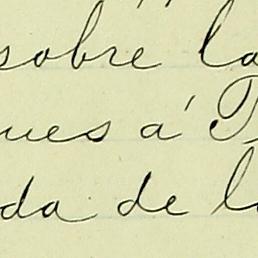 sobre la
ues á
da de l